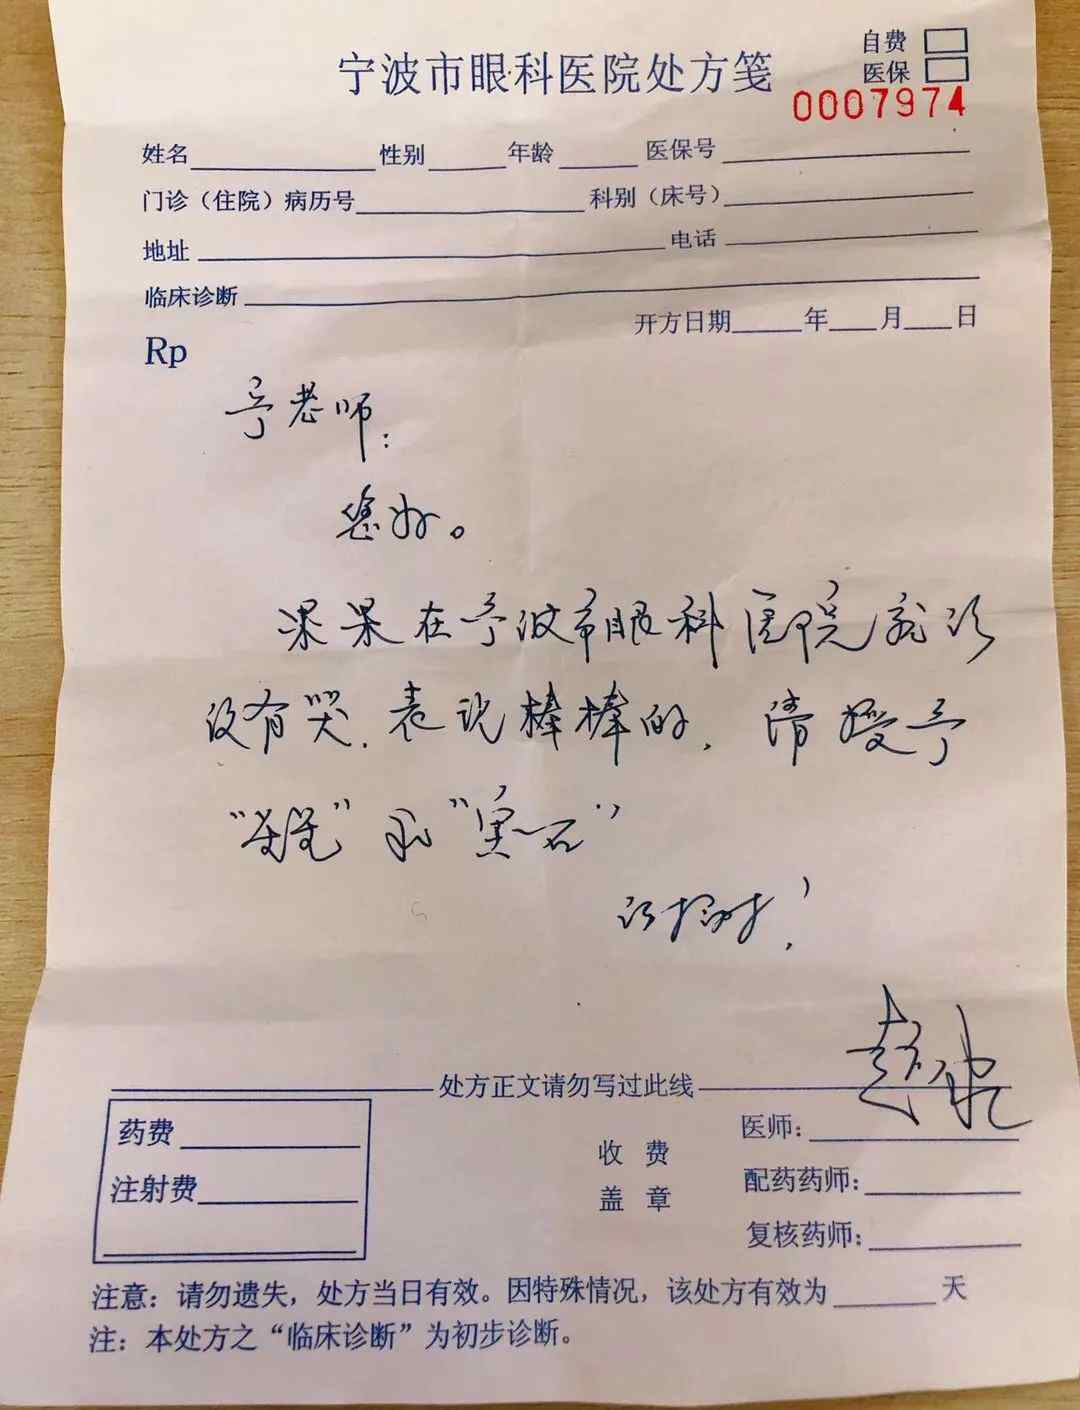 宁波市眼科医院处方笺
自费
医保
0007974
姓名 性别 年龄 医保号
门诊（住院）病历号 科别（床号）
地址 电话
临床诊断
开方日期 年 月 日
Rp
老师：
您好。
果果在宁波市眼科医院就诊
没有哭，表现棒棒的，请授予
和“宝石”
谢谢！
处方正文请勿写过此线
药费
注射费
收费
盖章
医师：
配药药师：
复核药师：
注意：请勿遗失，处方当日有效。因特殊情况，该处方有效为 天
注：本处方之“临床诊断”为初步诊断。